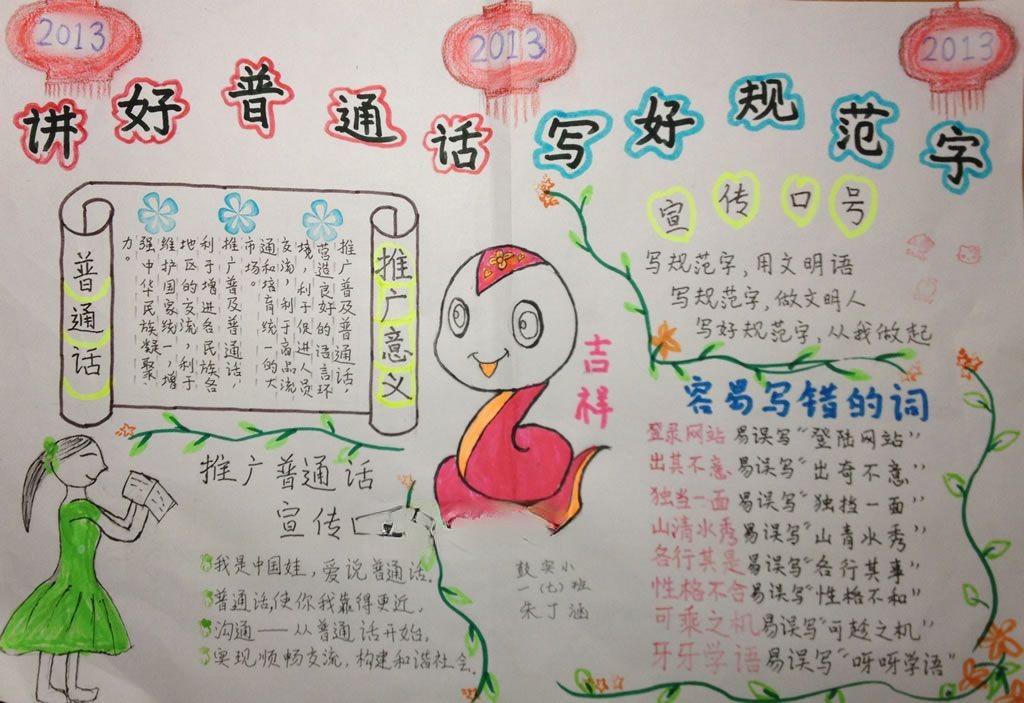 2013
2013
2013
讲好普通话 写好规范字
普通话
推广意义
推广普及普通话，
营造良好的语言环
境，利于促进人员
交流，利于商品流
通和培育统一的大
市场。
推广普及普通话，
利于增进各民族各
地区的交流，利于
维护国家统一，增
强中华民族凝聚
力。
宣传口号
写规范字，用文明语
写规范字，做文明人
写好规范字，从我做起
吉祥
容易写错的词
登录网站 易误写“登陆网站”
出其不意 易误写“出奇不意”
独当一面 易误写“独挡一面”
山清水秀 易误写“山青水秀”
各行其是 易误写“各行其事”
性格不合 易误写“性格不和”
可乘之机 易误写“可趁之机”
牙牙学语 易误写“呀呀学语”
推广普通话
宣传
我是中国娃，爱说普通话.
普通话，使你我靠得更近，
沟通——从普通话开始，
实现顺畅交流，构建和谐社会.
鼓实小
一（七）班
朱丁涵